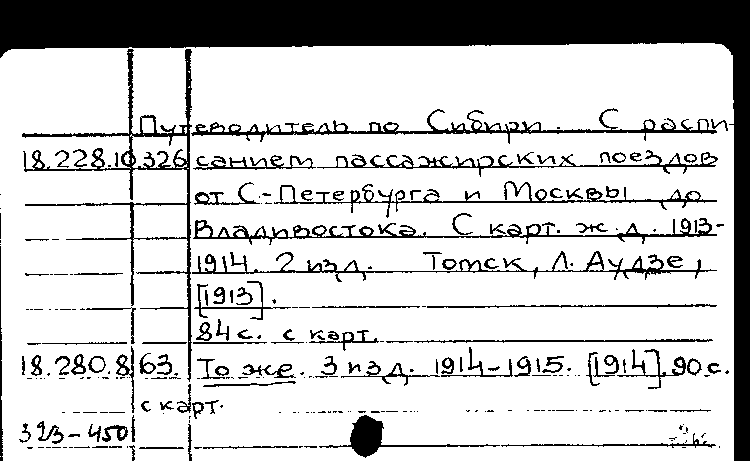 Путеводитель по Сибири. С распи-
18.228.10.326 санием пассажирских поездов
от С-Петербурга и Москвы до
Владивостока. С карт. ж.д. 1913-
1914. 2 изд. Томск, Л. Аудзе,
[1913].
84 с. с карт.
18.280.8.63. То же. 3 изд. 1914-1915. [1914]. 90 с.
с карт.
323-450